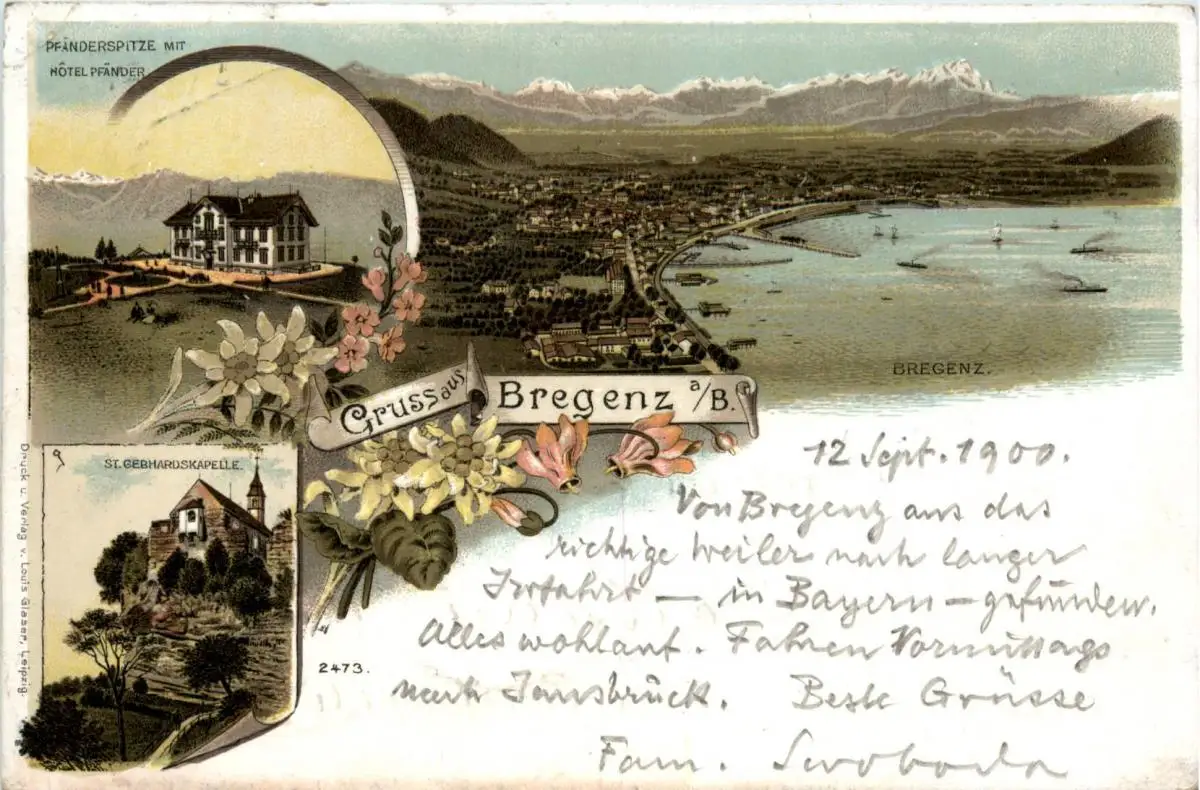 PFÄNDERSPITZE MIT
HÔTEL PFÄNDER.
BREGENZ.
Gruss aus Bregenz a/B.
ST. GEBHARDSKAPELLE.
Druck u. Verlag v. Louis Glaser, Leipzig.
2473.
12 Sept. 1900.
Von Bregenz aus das
richtige Weiler nach langer
Irrfahrt – in Bayern – gefunden.
Alles wohlauf. Fahren Vormittags
nach Innsbruck. Beste Grüsse
Fam. Swoboda